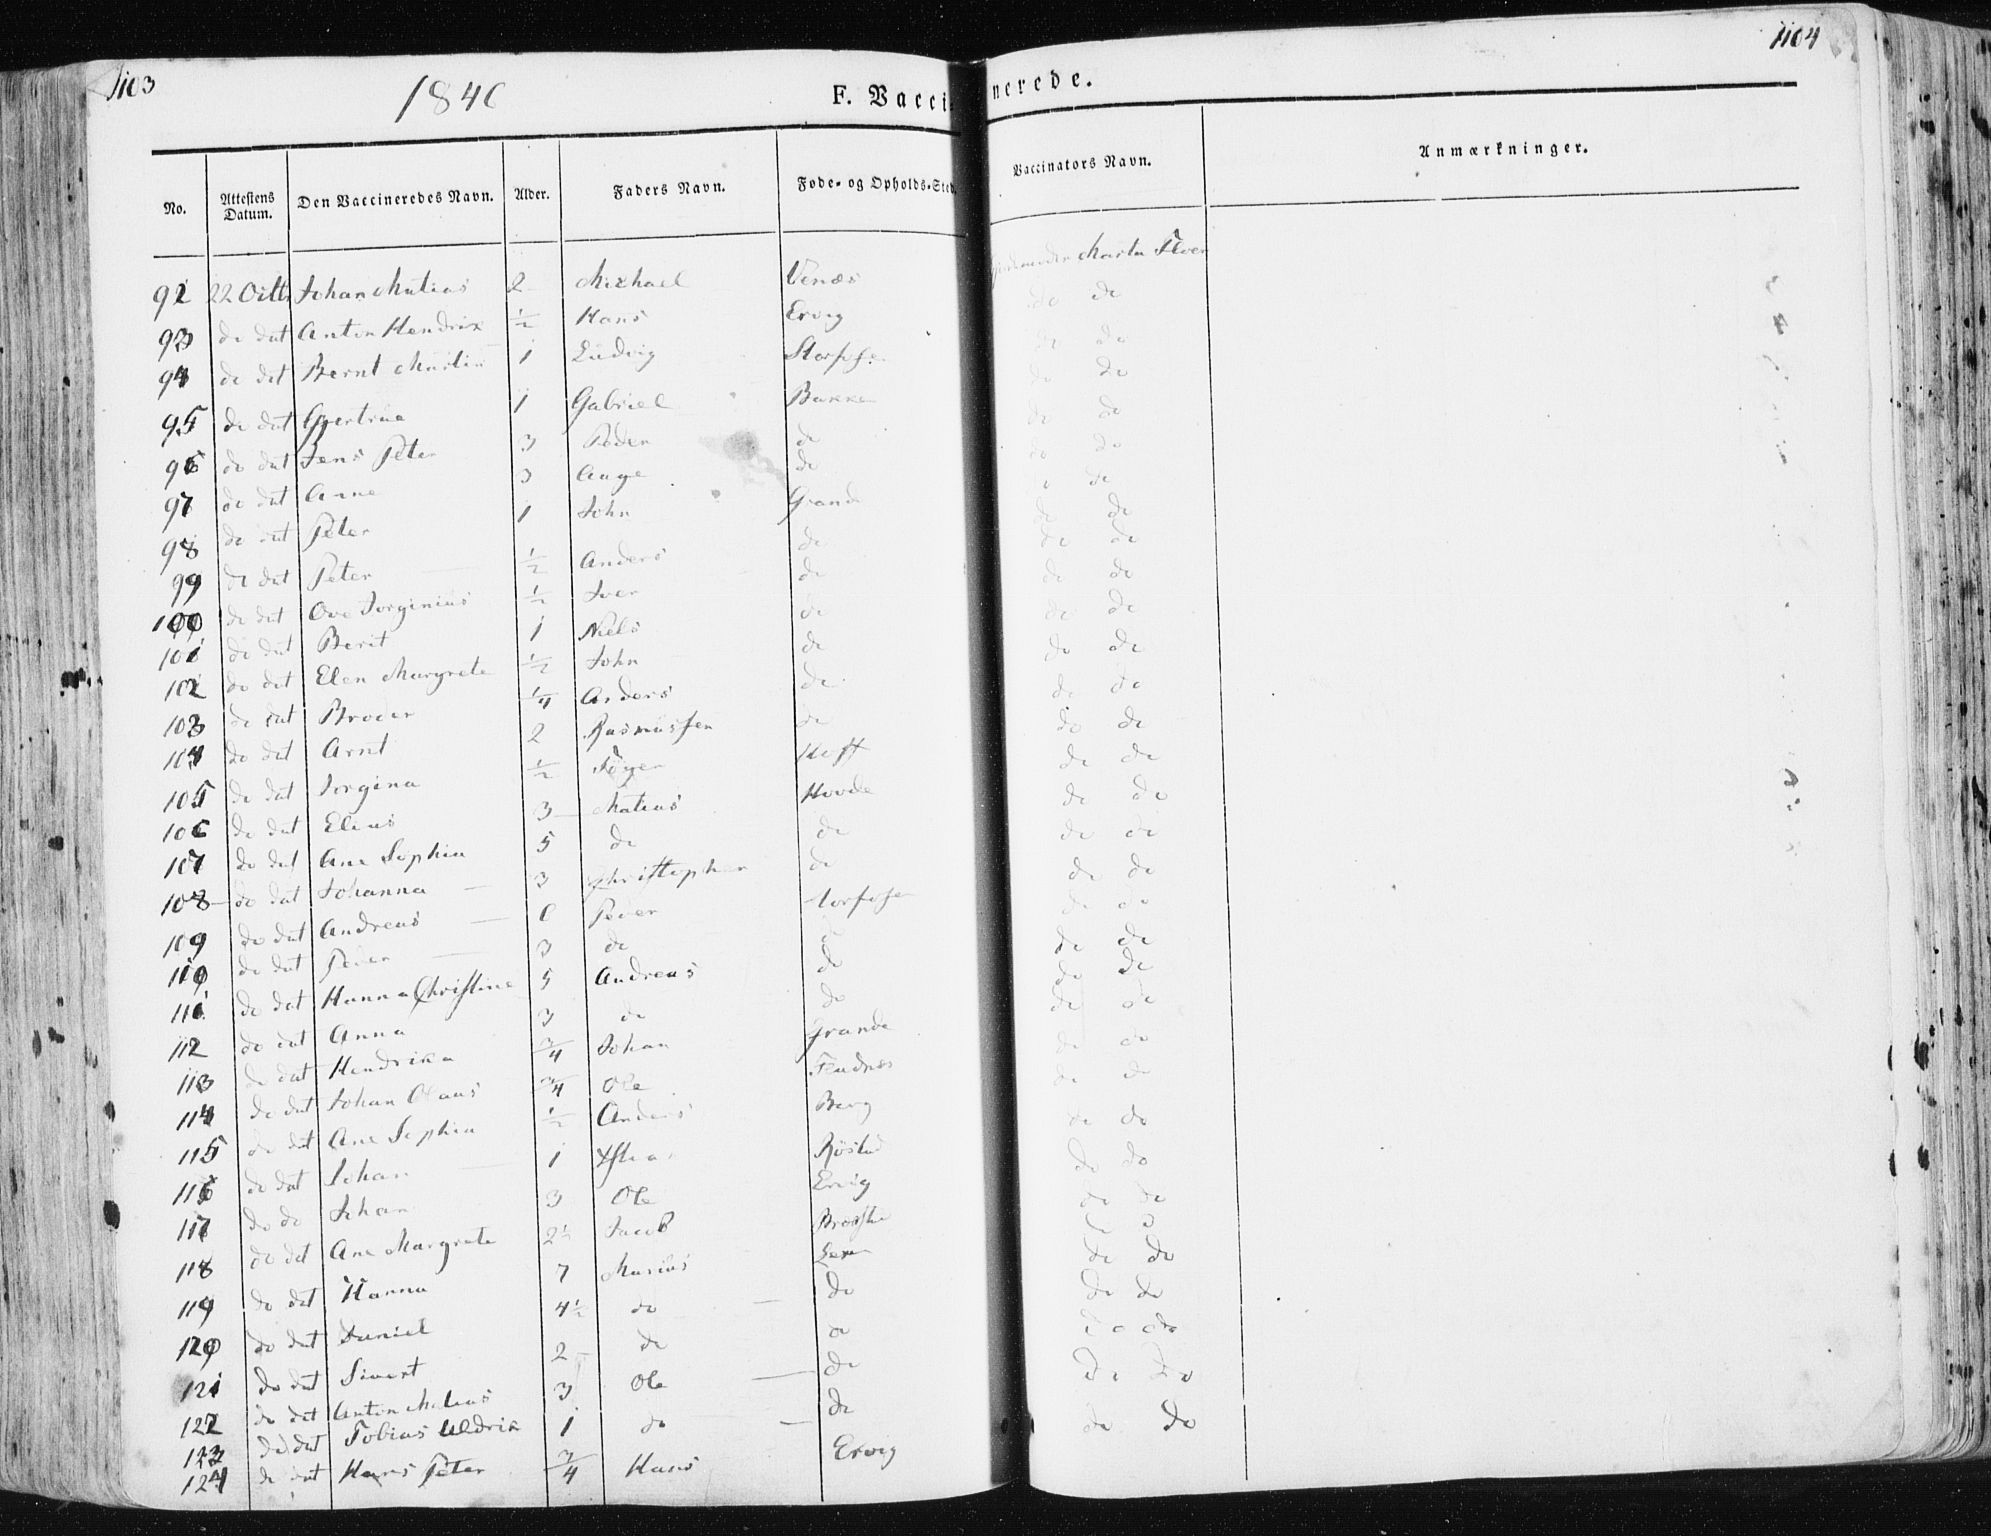 1103
1104
1840
F. Vaccinerede.
No. Attestens Datum. Den Vaccineredes Navn. Alder. Faders Navn. Føde- og Opholds-Sted. Vaccinators Navn. Anmærkninger.
92 22 Octb Johan Matias 2 Michael Venæs Marta
93 do dat Anton Hendrix ½ Hans Ervig do do
94 do dat Bernt Martin 1 Ludvig Storfosen do do
95 do dat Gjertrue 1 Gabriel Bakken do do
96 do dat Jens Peter 3 Peder do do do
97 do dat Anne 3 Aage do do do
98 do dat Peter 1 John Grande do do
99 do dat Peter ½ Anders do do do
100 do dat Ove Jorginius ½ Iver do do do
101 do dat Berit 1 Niels do do do
102 do dat Elen Margrete ½ John do do do
103 do dat Broder ¼ Anders do do do
104 do dat Arnt 2 Rasmussen do do do
105 do dat Jorgina ½ Hoff do do
106 do dat Elias 3 Matias Hovde do do
107 do dat Ane Sophia 5 do do do do
108 do dat Johanna 3 Christopher do do do
109 do dat Andreas Peder Storfosen do do
110 do dat Peder 3 do do do do
111 do dat Hanna Christine 5 Andreas do do do
112 do dat Anna 3 do do do do
113 do dat Hendrika ¾ Johan Grande do do
114 do dat Johan Olaus ¾ Ole do do
115 do dat Ane Sophia ½ Anders Berg do do
116 do dat Johan 1 Røstad do do
117 do do Johan 3 Ole Ervig do do
118 do dat Ane Margrete 2½ Jacob do do
119 do dat Hanna 7 Marius do do
120 do dat Daniel 4½ do do do do
121 do dat Sivert 2 do do do do
122 do dat Anton Matias 3 Ole do do do
123 do dat Tobias Uldrik 1 do do do do
124 do dat Hans Peter ¾ Hans Ervig